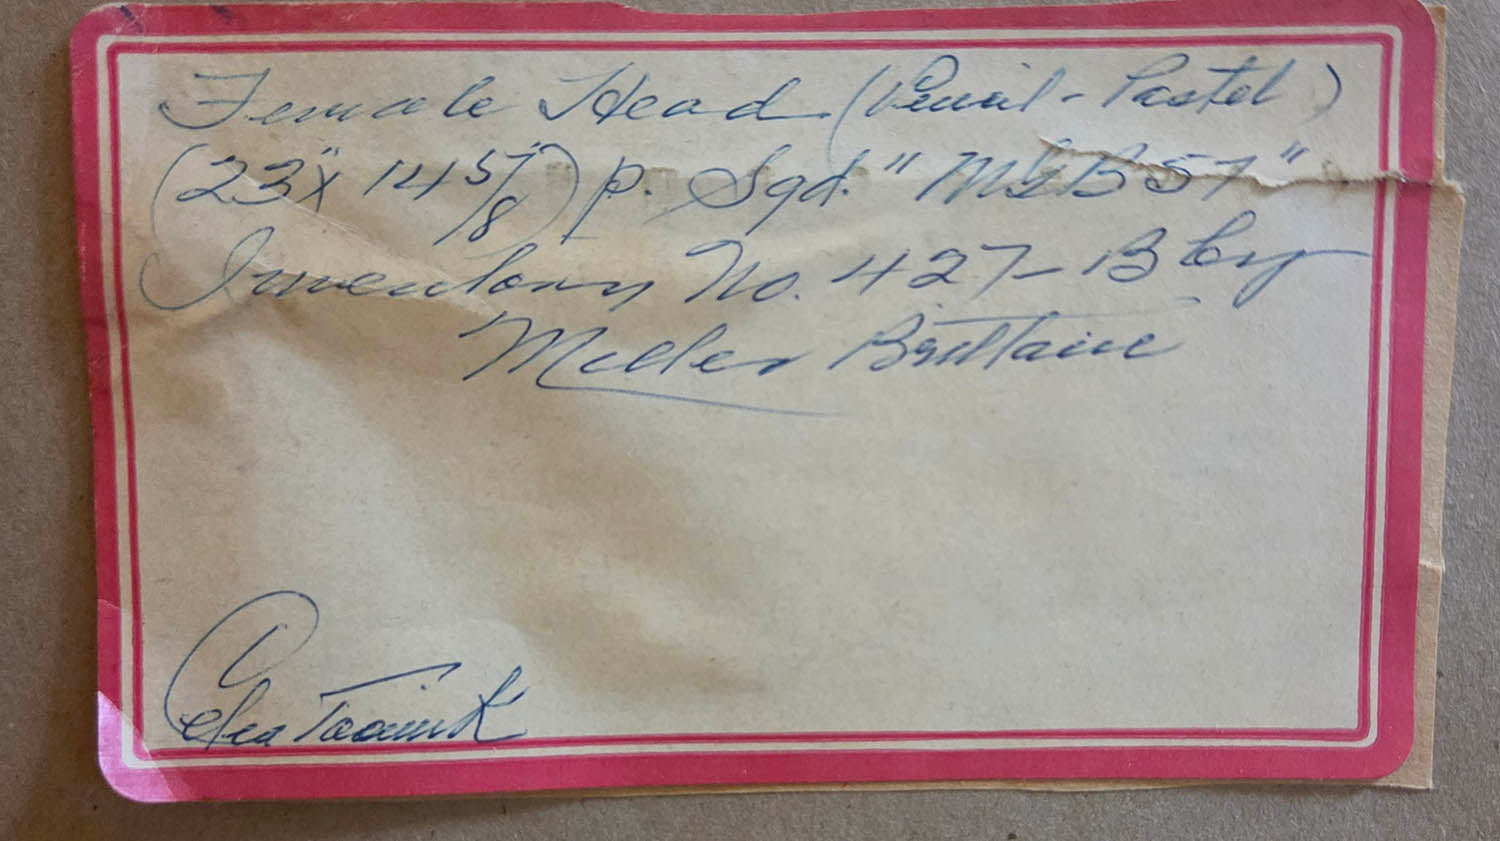 Female Head (Pencil - Pastel)
(23" x 14 5/8") p. Sgd. "MGB 57"
Inventory No. 427-B by
Miller Brittain